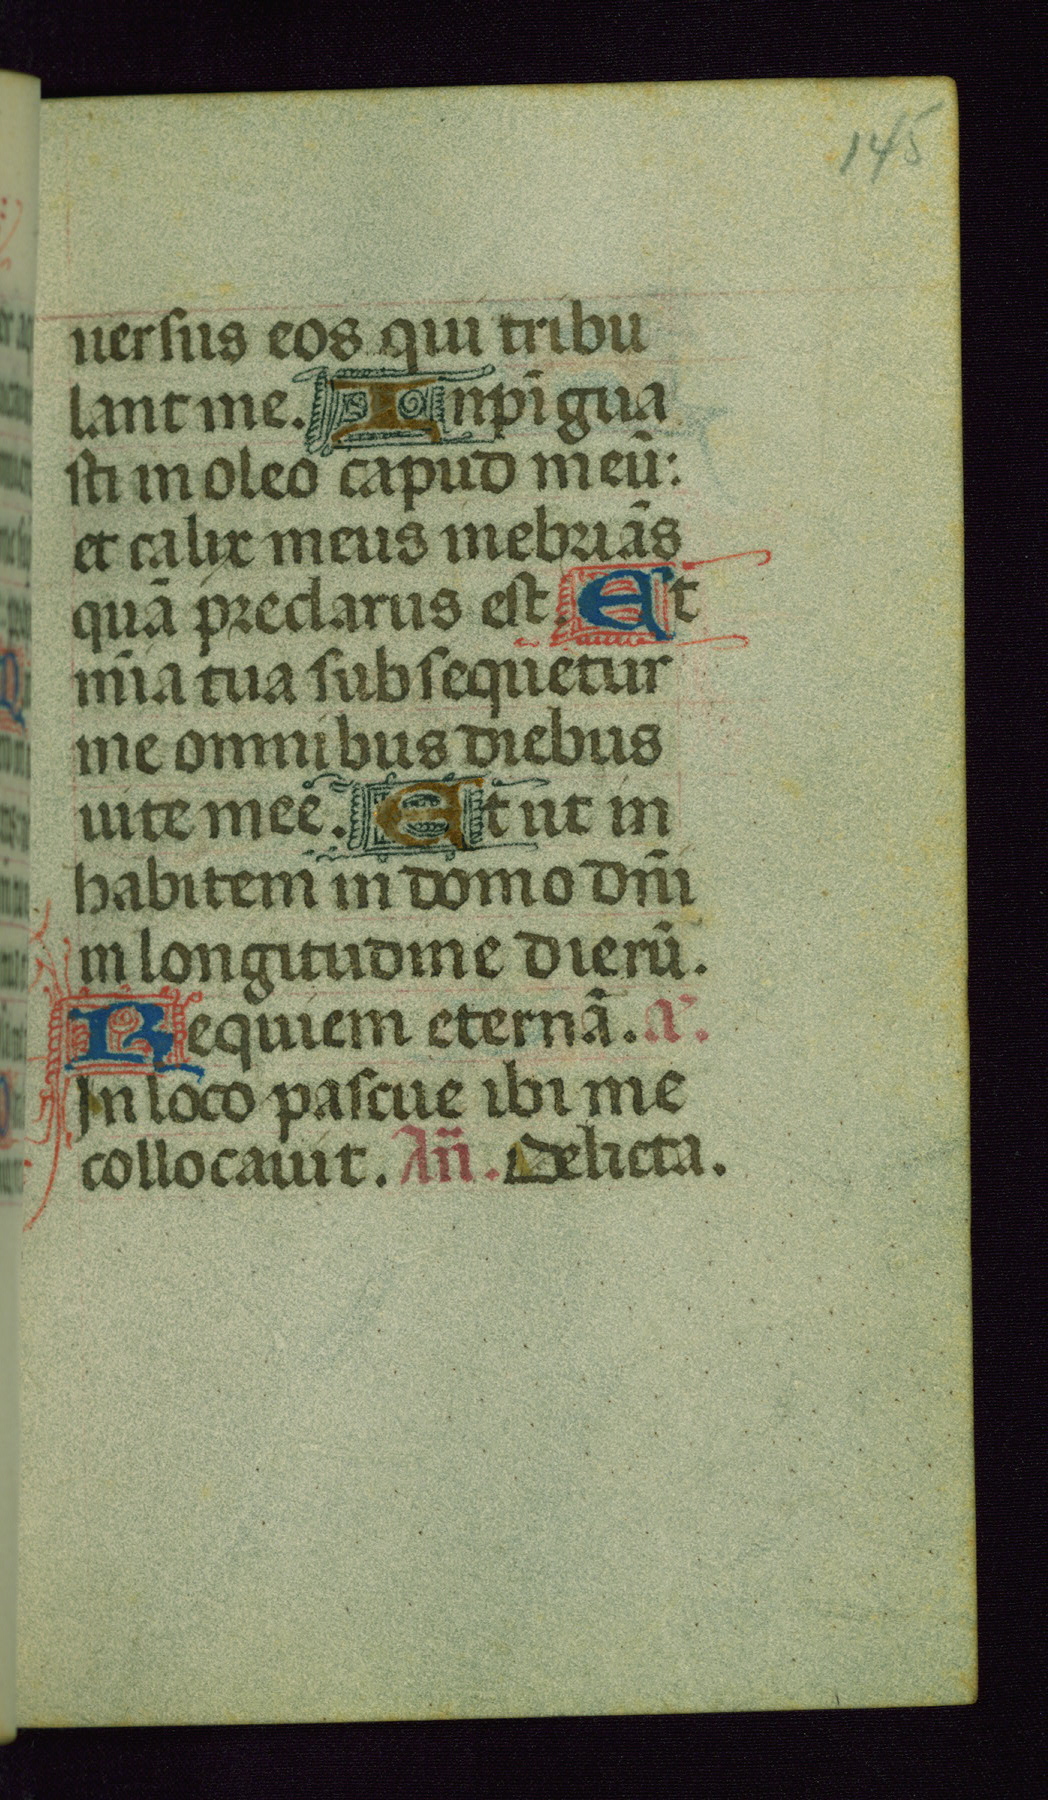 145
uersus eos qui tribu
lant me. Inpīgua
sti in oleo capud meū:
et calix meus inebriās
quā preclarus est. Et
mīa tua subsequetur
me omnibus diebus
uite mee. Et ut in
habitem in domo dn̄i
in longitudine dierū.
Requiem eternā. a͛.
In loco pascue ibi me
collocauit. An̄. Delicta.